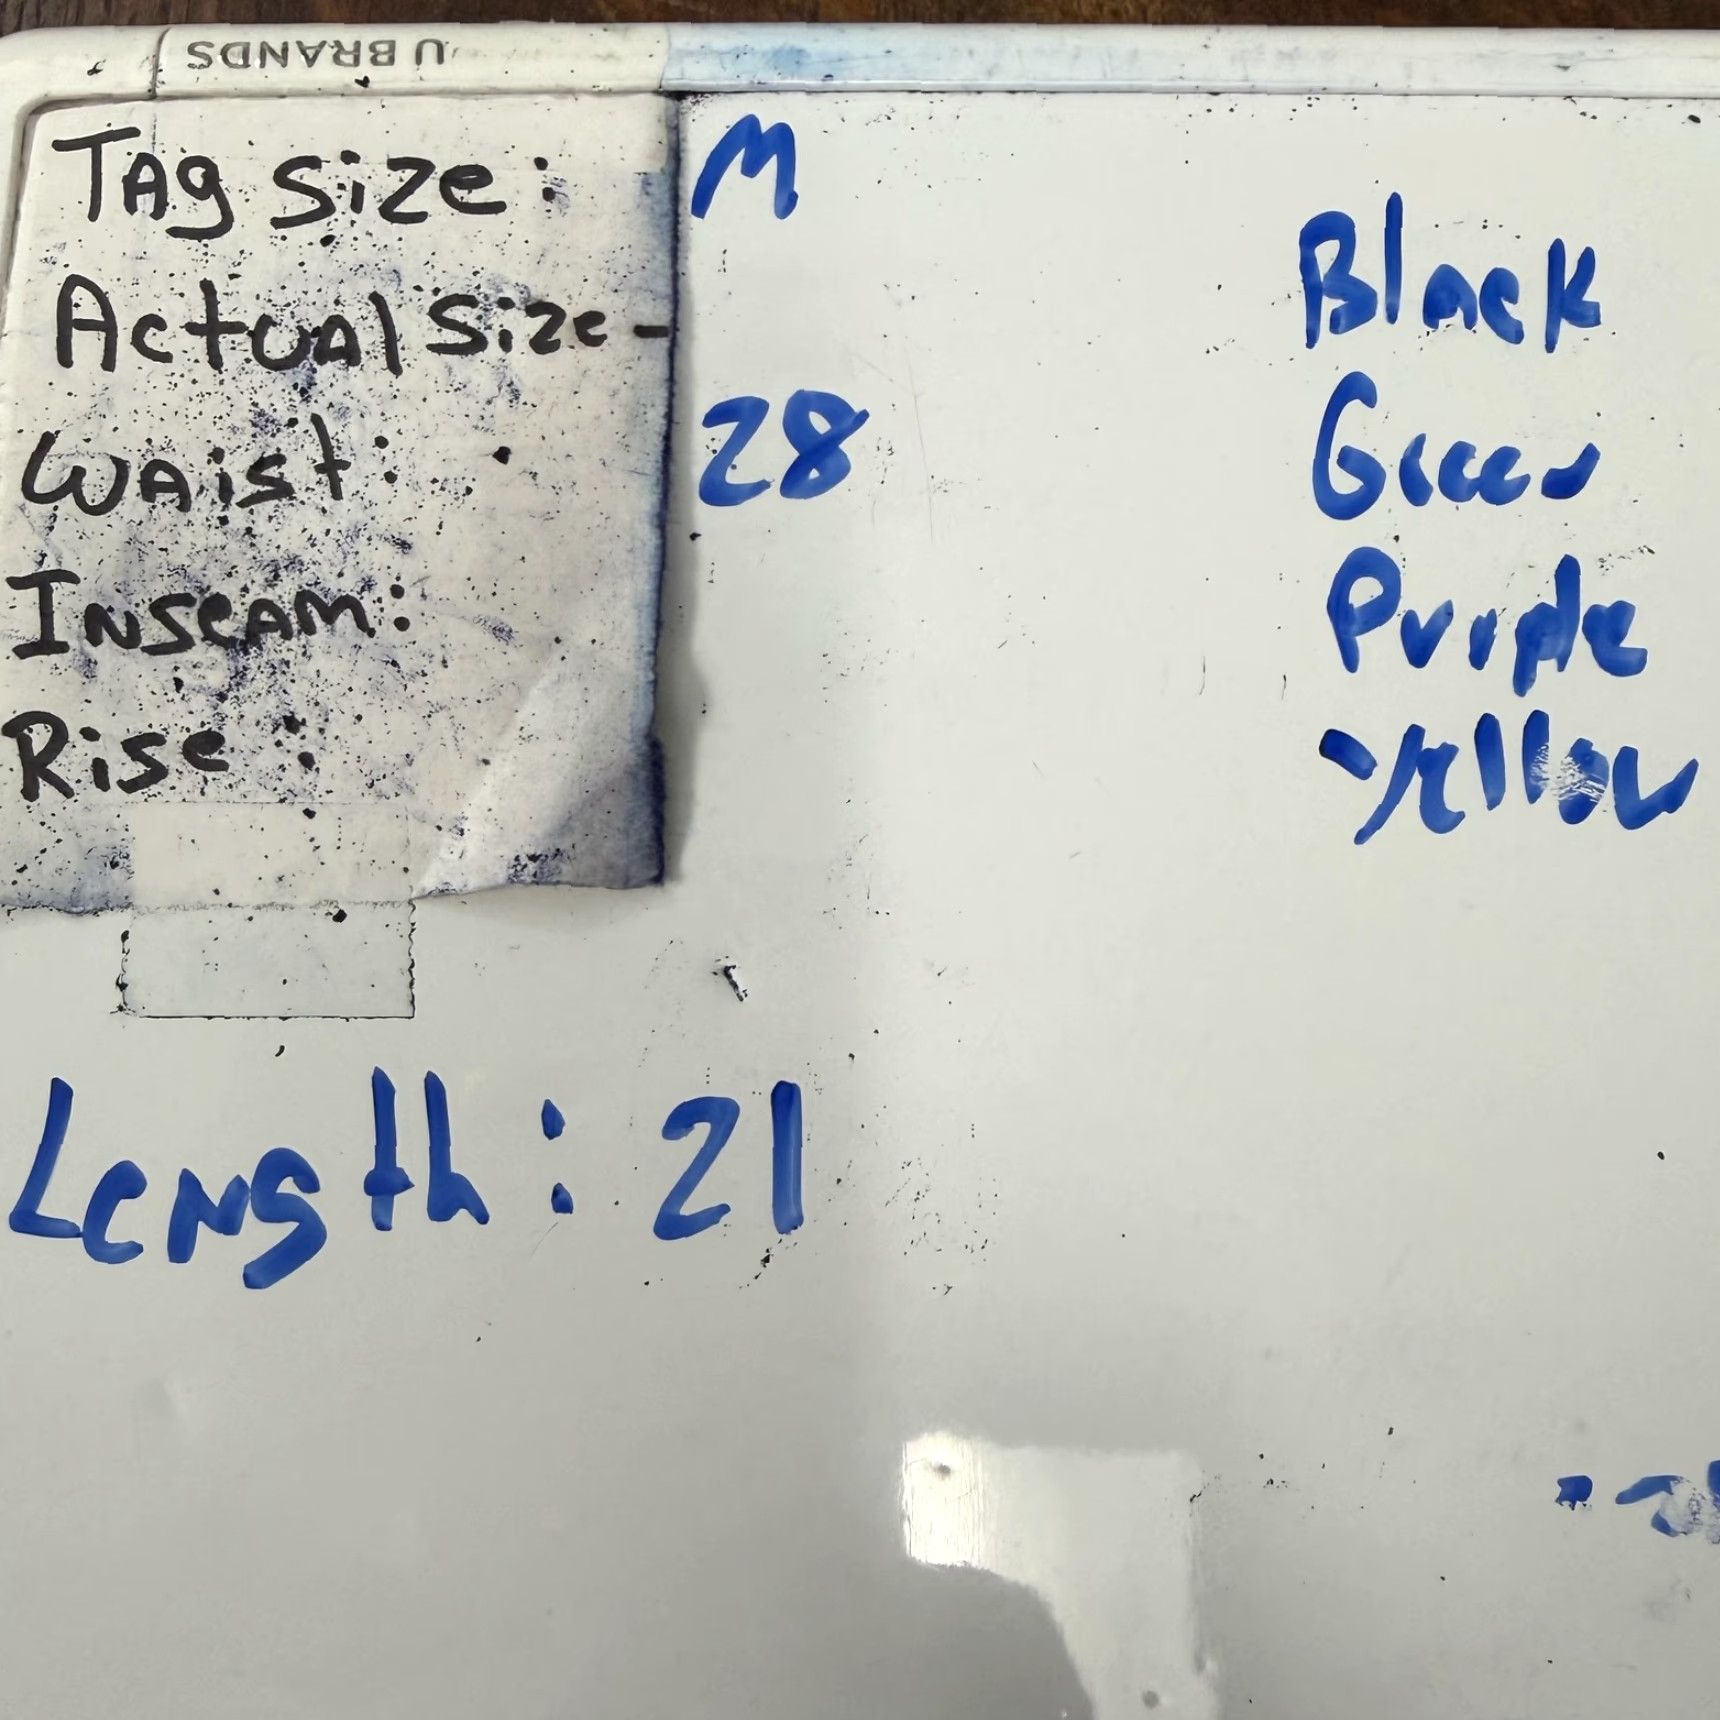 U BRANDS
TAg Size: M
Actual Size -
Waist: 28
Inseam:
Rise:
Black
Green
Purple
Yellow
Length: 21